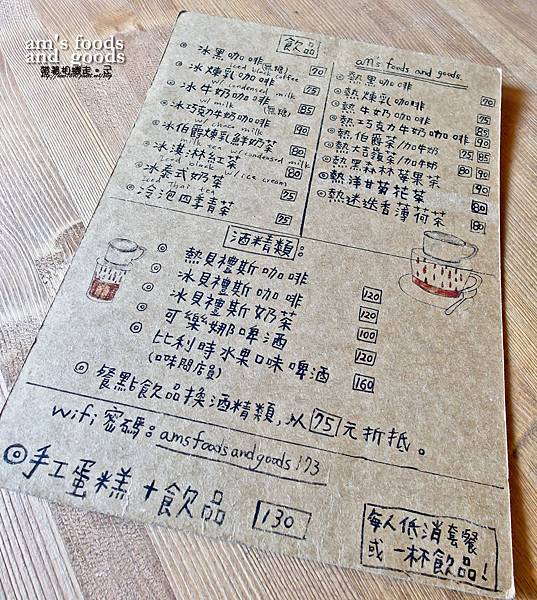 am's foods
and goods
飲品
冰黑咖啡(無糖) 70
iced black coffee
冰煉乳咖啡 75
w/ condensed milk
冰牛奶咖啡(無糖) 85
w/ milk
冰巧克力牛奶咖啡 90
w/ choco milk
冰伯爵煉乳鮮奶茶 80
milk tea w/condensed milk
冰漂冰淋紅茶 80
iced tea w/ ice cream
冰泰式奶茶 75
Thai tea
冷泡四季青茶 75
am's foods and goods
熱黑咖啡 70
熱煉乳咖啡 75
熱牛奶咖啡 85
熱巧克力牛奶咖啡 90
熱伯爵茶/加牛奶 75 85
熱大吉嶺茶/加牛奶 80 90
熱黑森林莓果茶 90
熱洋甘菊花茶 80
熱迷迭香薄荷茶 80
酒精類:
熱貝禮斯咖啡 120
冰貝禮斯咖啡 120
冰貝禮斯奶茶 100
可樂娜啤酒 120
比利時水果口味啤酒 160
(口味問店員)
餐點飲品換酒精類,以75元折抵。
wifi密碼:amsfoodsandgoods173
手工蛋糕+飲品 130
每人低消套餐
或一杯飲品!